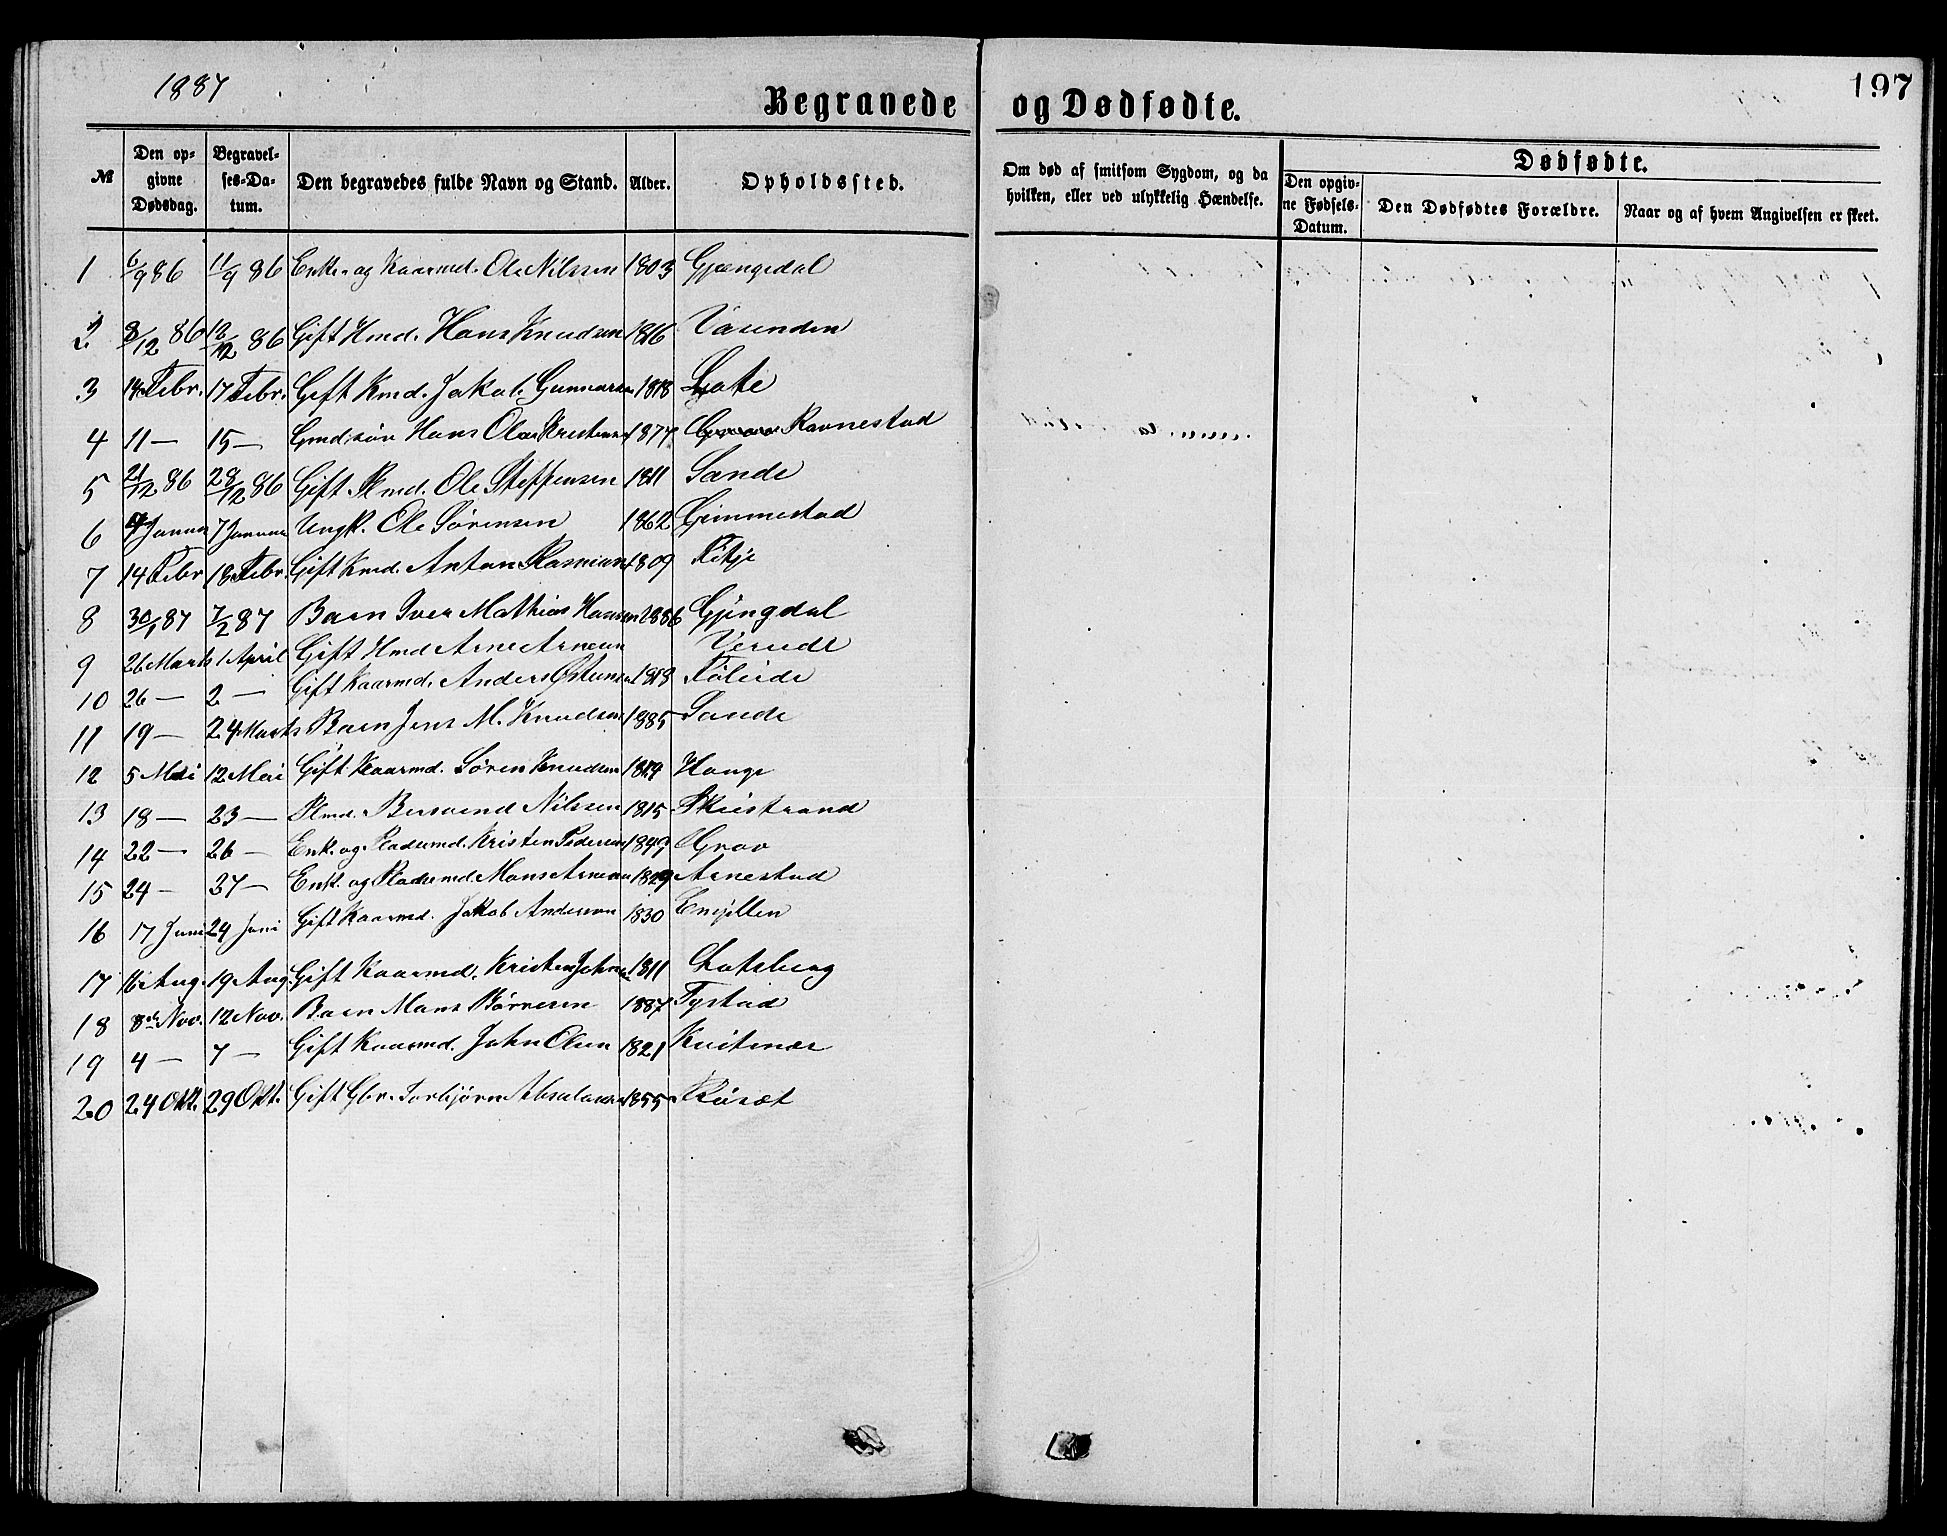 1887
197
Begravede og Dødfødte.
№ Den opgivne Dødsdag. Begravelses-Datum. Den begravedes fulde Navn og Stand. Alder. Opholdssted. Om død af smitsom Sygdom, og da hvilken, eller ved ulykkelig Hændelse. Dødfødte. Den opgivne Fødsels-Datum. Den Dødfødtes Forældre. Naar og af hvem Angivelsen er skeet.
1 6/9 86 11/9 86 Enke- og Kaarmd. Ole Nilssen 1803 Gjengedal
2 8/12 86 12/12 86 Gift Hmd. Hans Knudsen 1816 Vasenden
3 14 Febr. 17 Febr. Gift Kmd. Jakob Gunnarsen 1818 Lote
4 11 — 15 — Gmd. søn Hans Olai Kristensen 1877 Ravnestad
5 21/12 86 28/12 86 Gift Plmd. Ole Steffensen 1811 Sande
6 Januar 7 Januar Ungk. Ole Sørensen 1862 Gimmestad
7 14 Febr 18 Febr. Gift Kmd. Anton Rasmussen 1809 Fitje
8 30/1 87 7/2 87 Barn Iver Mathias Hansen 1886 Gjengdal
9 26 Marts 1 April Gift Hmd Arne Arnesen
10 26 — 2 — Gift Kaarmd. Anders Østensen 1818
11 19 — 24 Marts Barn Jens M. Knudsen 1885 Sande
12 5 Mai 12 Mai Gift Kaarmd. Søren Knudsen 1819 Hauge
13 18 — 23 — Plmd. Nilssen 1815
14 22 — 26 — Enk. og Pladsmd. Kristen Pedersen Grov
15 24 — 27 — Enk. og Pladsmd. Mons Arnesen 1829 Arnestad
16 17 Juni 24 Juni Gift Kaarmd. Jakob Andersen 1830
17 16 Aug. 19 Aug. Gift Kaarmd. Kristen Johns. 1811
18 8de Nov. 12 Nov. Barn Mons Børresen 1887 Tystad
19 4 — 7 — Gift Kaarmd. John Olsen 1821
20 24 Okt. 29 Okt. Gift Gbr. Torbjørn Absalonsen 1855